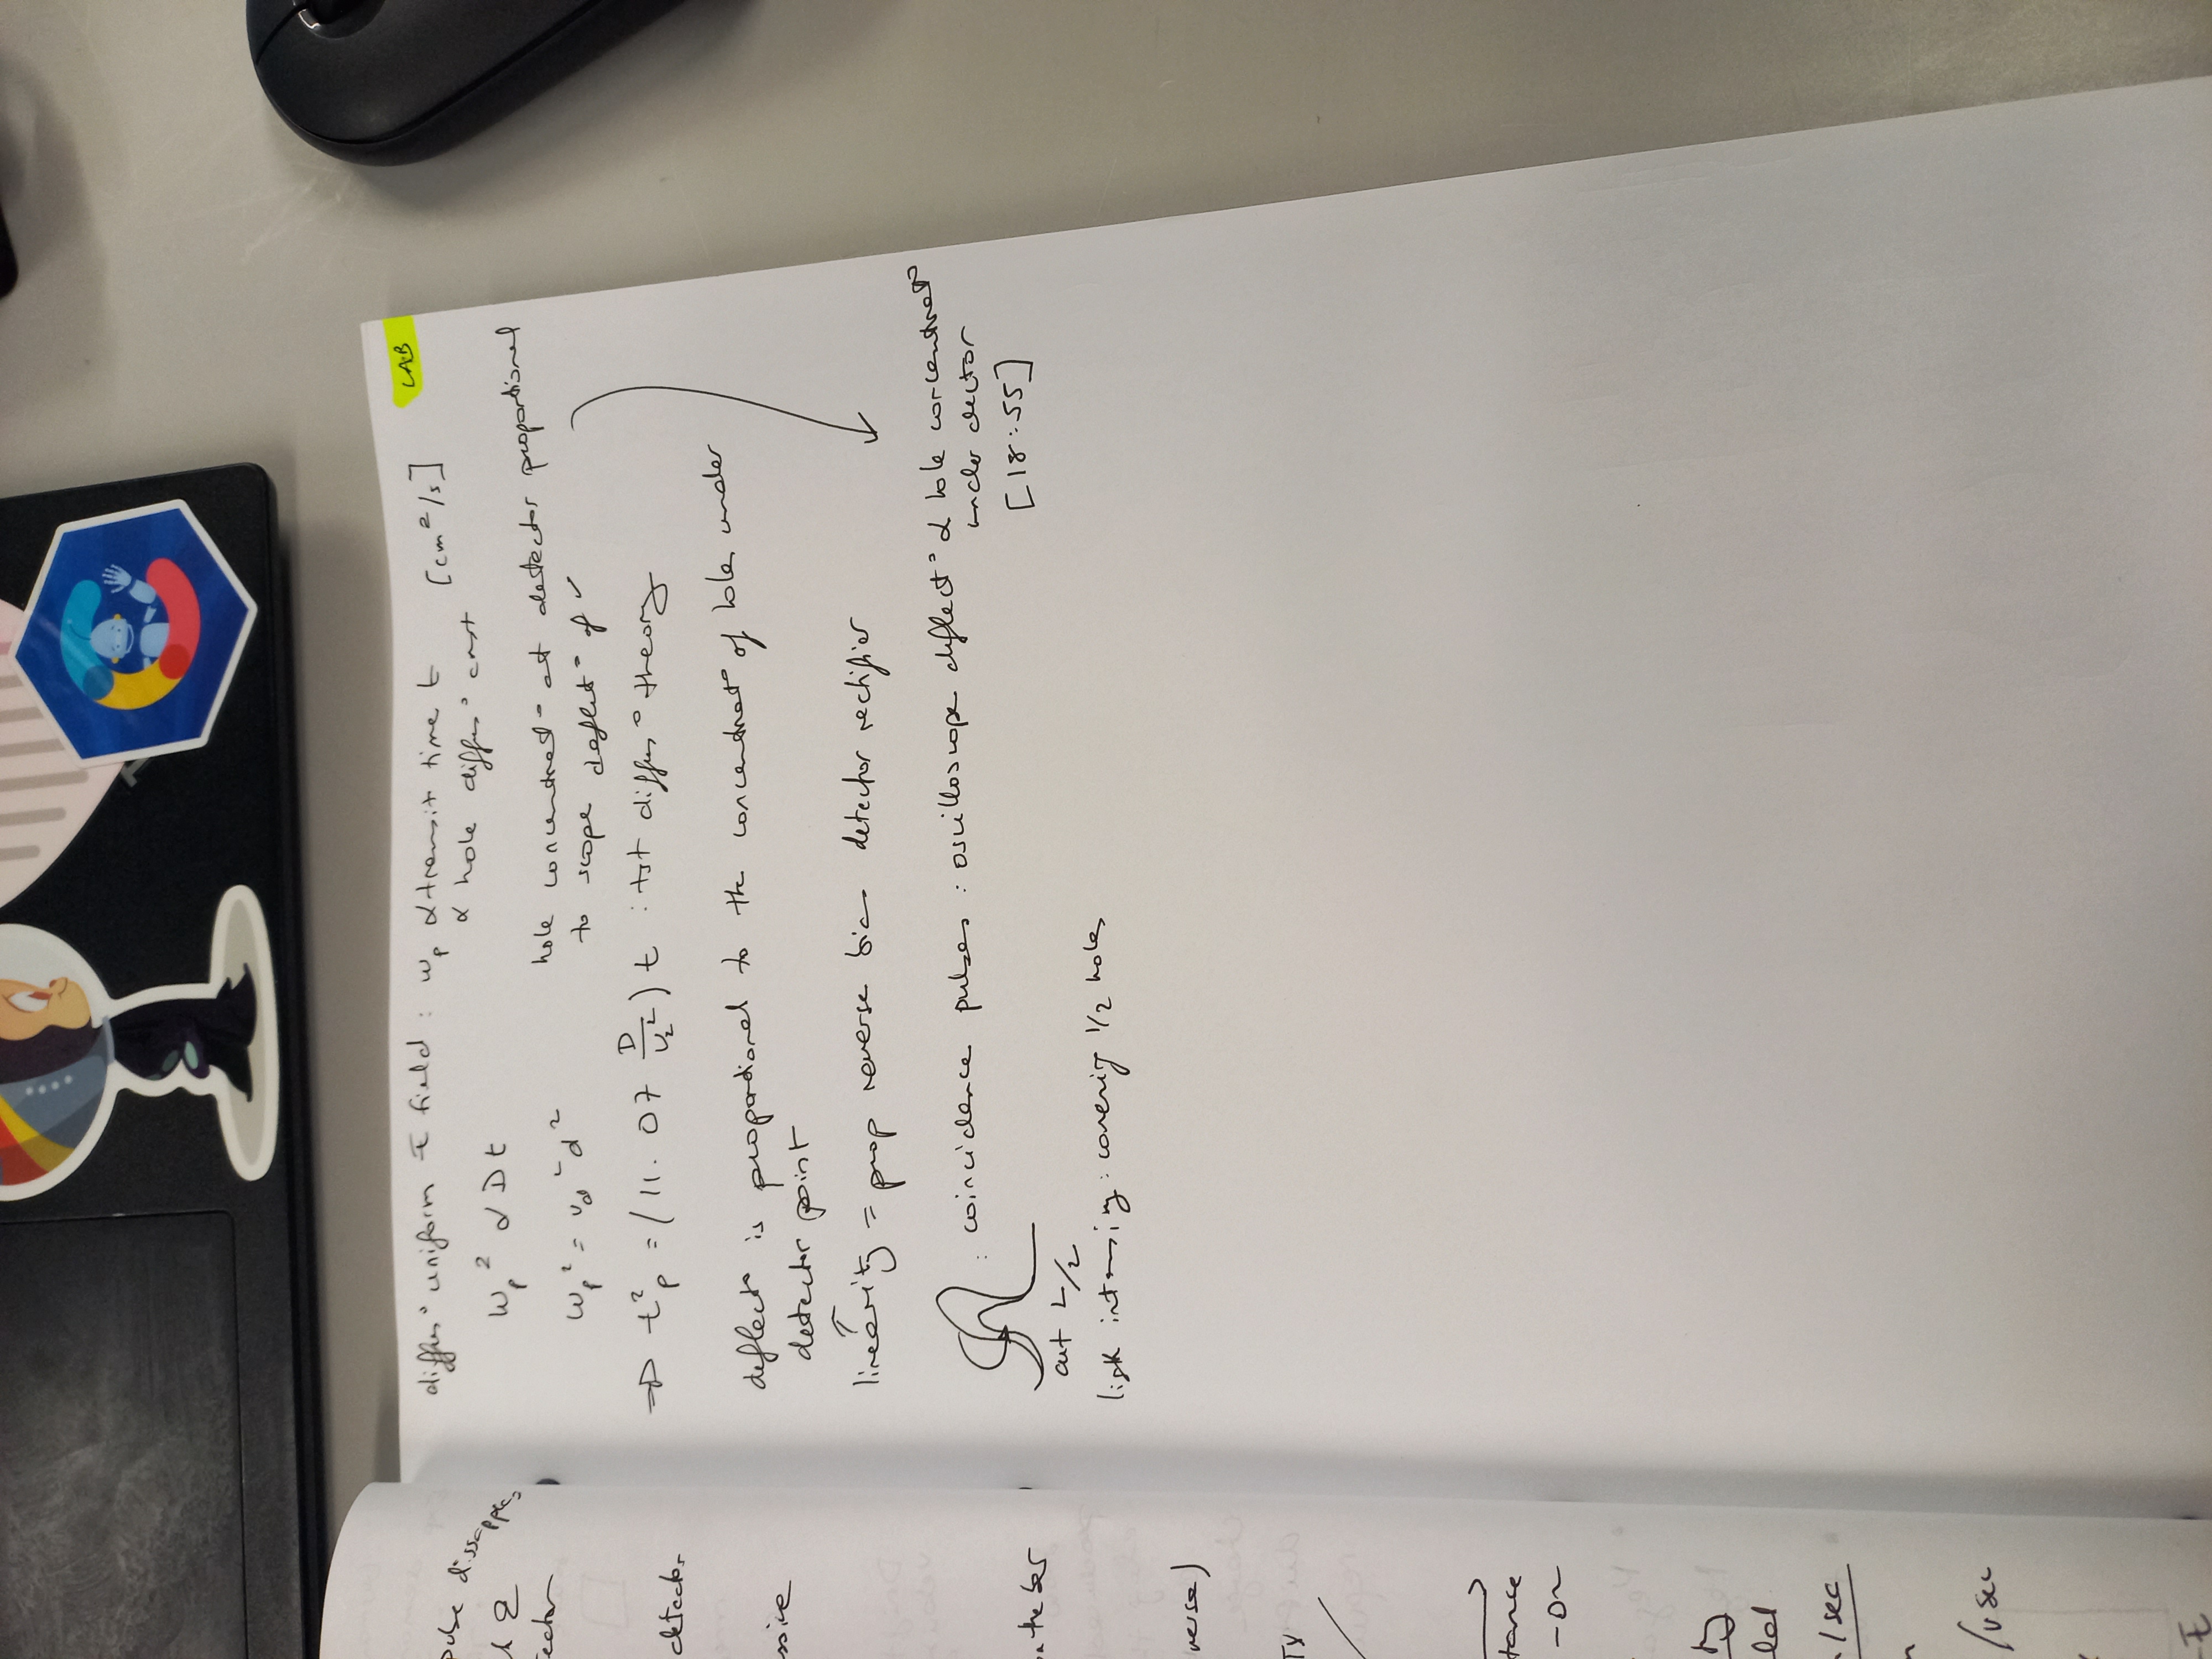 pulse dissappears
ector
detector
ssive
on the bar
verse)
TX
tance
ty
/sec
/vsec
LAB
diffus° uniform E field : wp α transit time t [cm²/s]
α hole diffus° cnst
wp² α Dt
hole concentrat° at detector proportional
wp² = vd² d²
to scope deflect° of
=D t²p = (11.07 D/v²) t : tst diffus° theory
deflect° is proportional to the concentrat° of holes under
detector point
linearity = prop reverse bias detector rectifier
: coincidence pulses : oscilloscope deflect° α hole concentrat°
under dector
[18:55]
cut L/2
light intensity : covering 1/2 holes